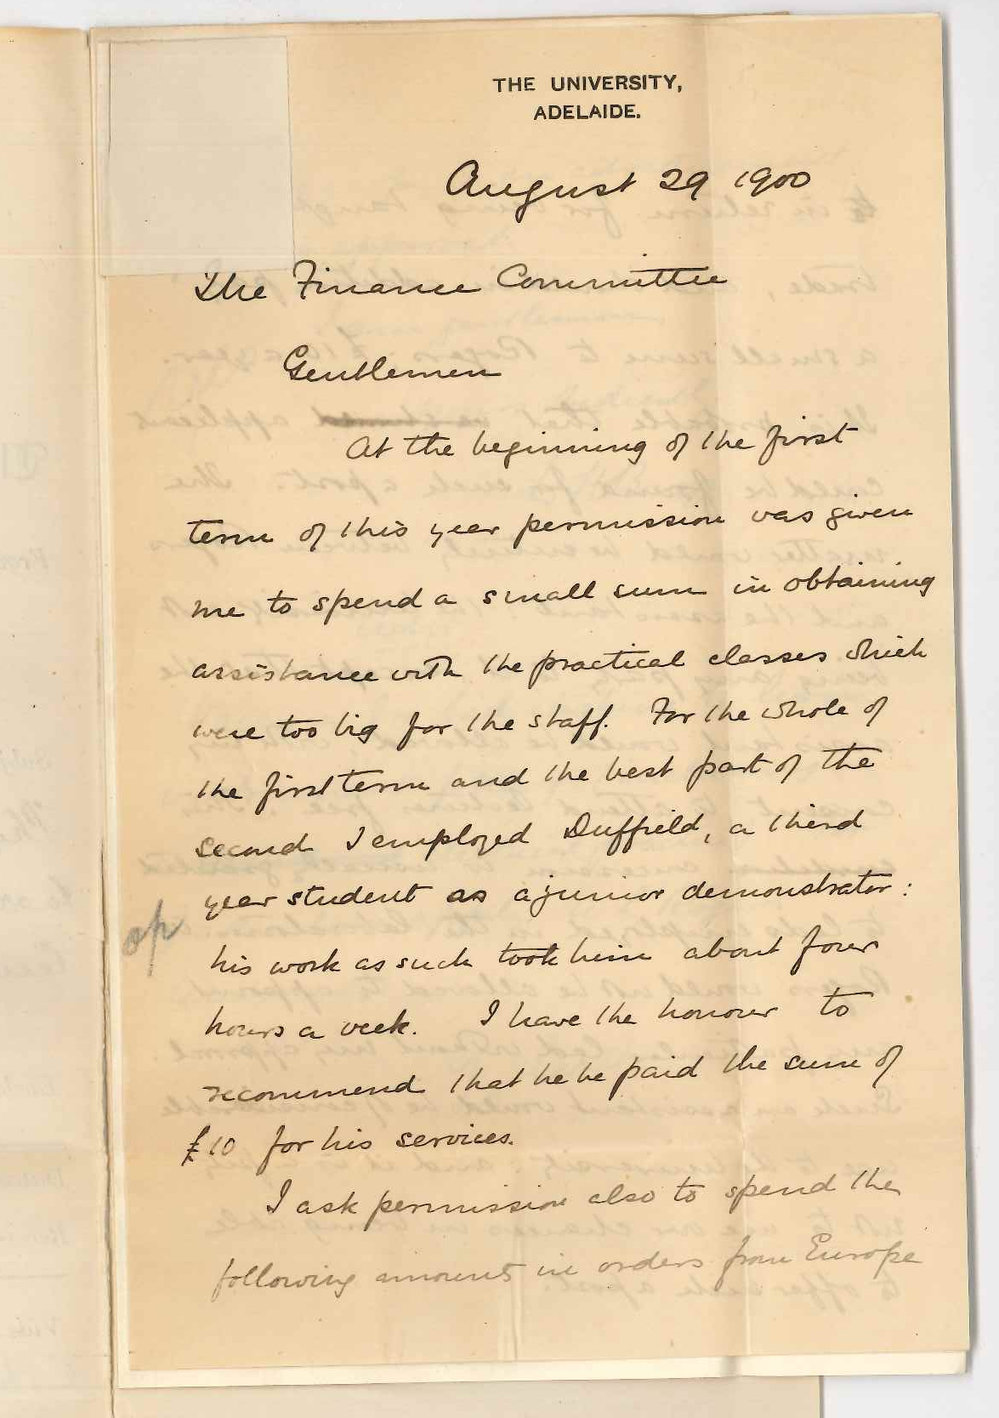 THE UNIVERSITY,
ADELAIDE.
August 29 1900
The Finance Committee
Gentlemen
At the beginning of the first
term of this year permission was given
me to spend a small sum in obtaining
assistance with the practical classes which
were too big for the staff. For the whole of
the first term and the best part of the
second I employed Duffield, a third
year student as a junior demonstrator:
his work as such took him about four
hours a week. I have the honour to
recommend that he be paid the sum of
£10 for his services.
I ask permission also to spend the
following amounts in orders from Europe